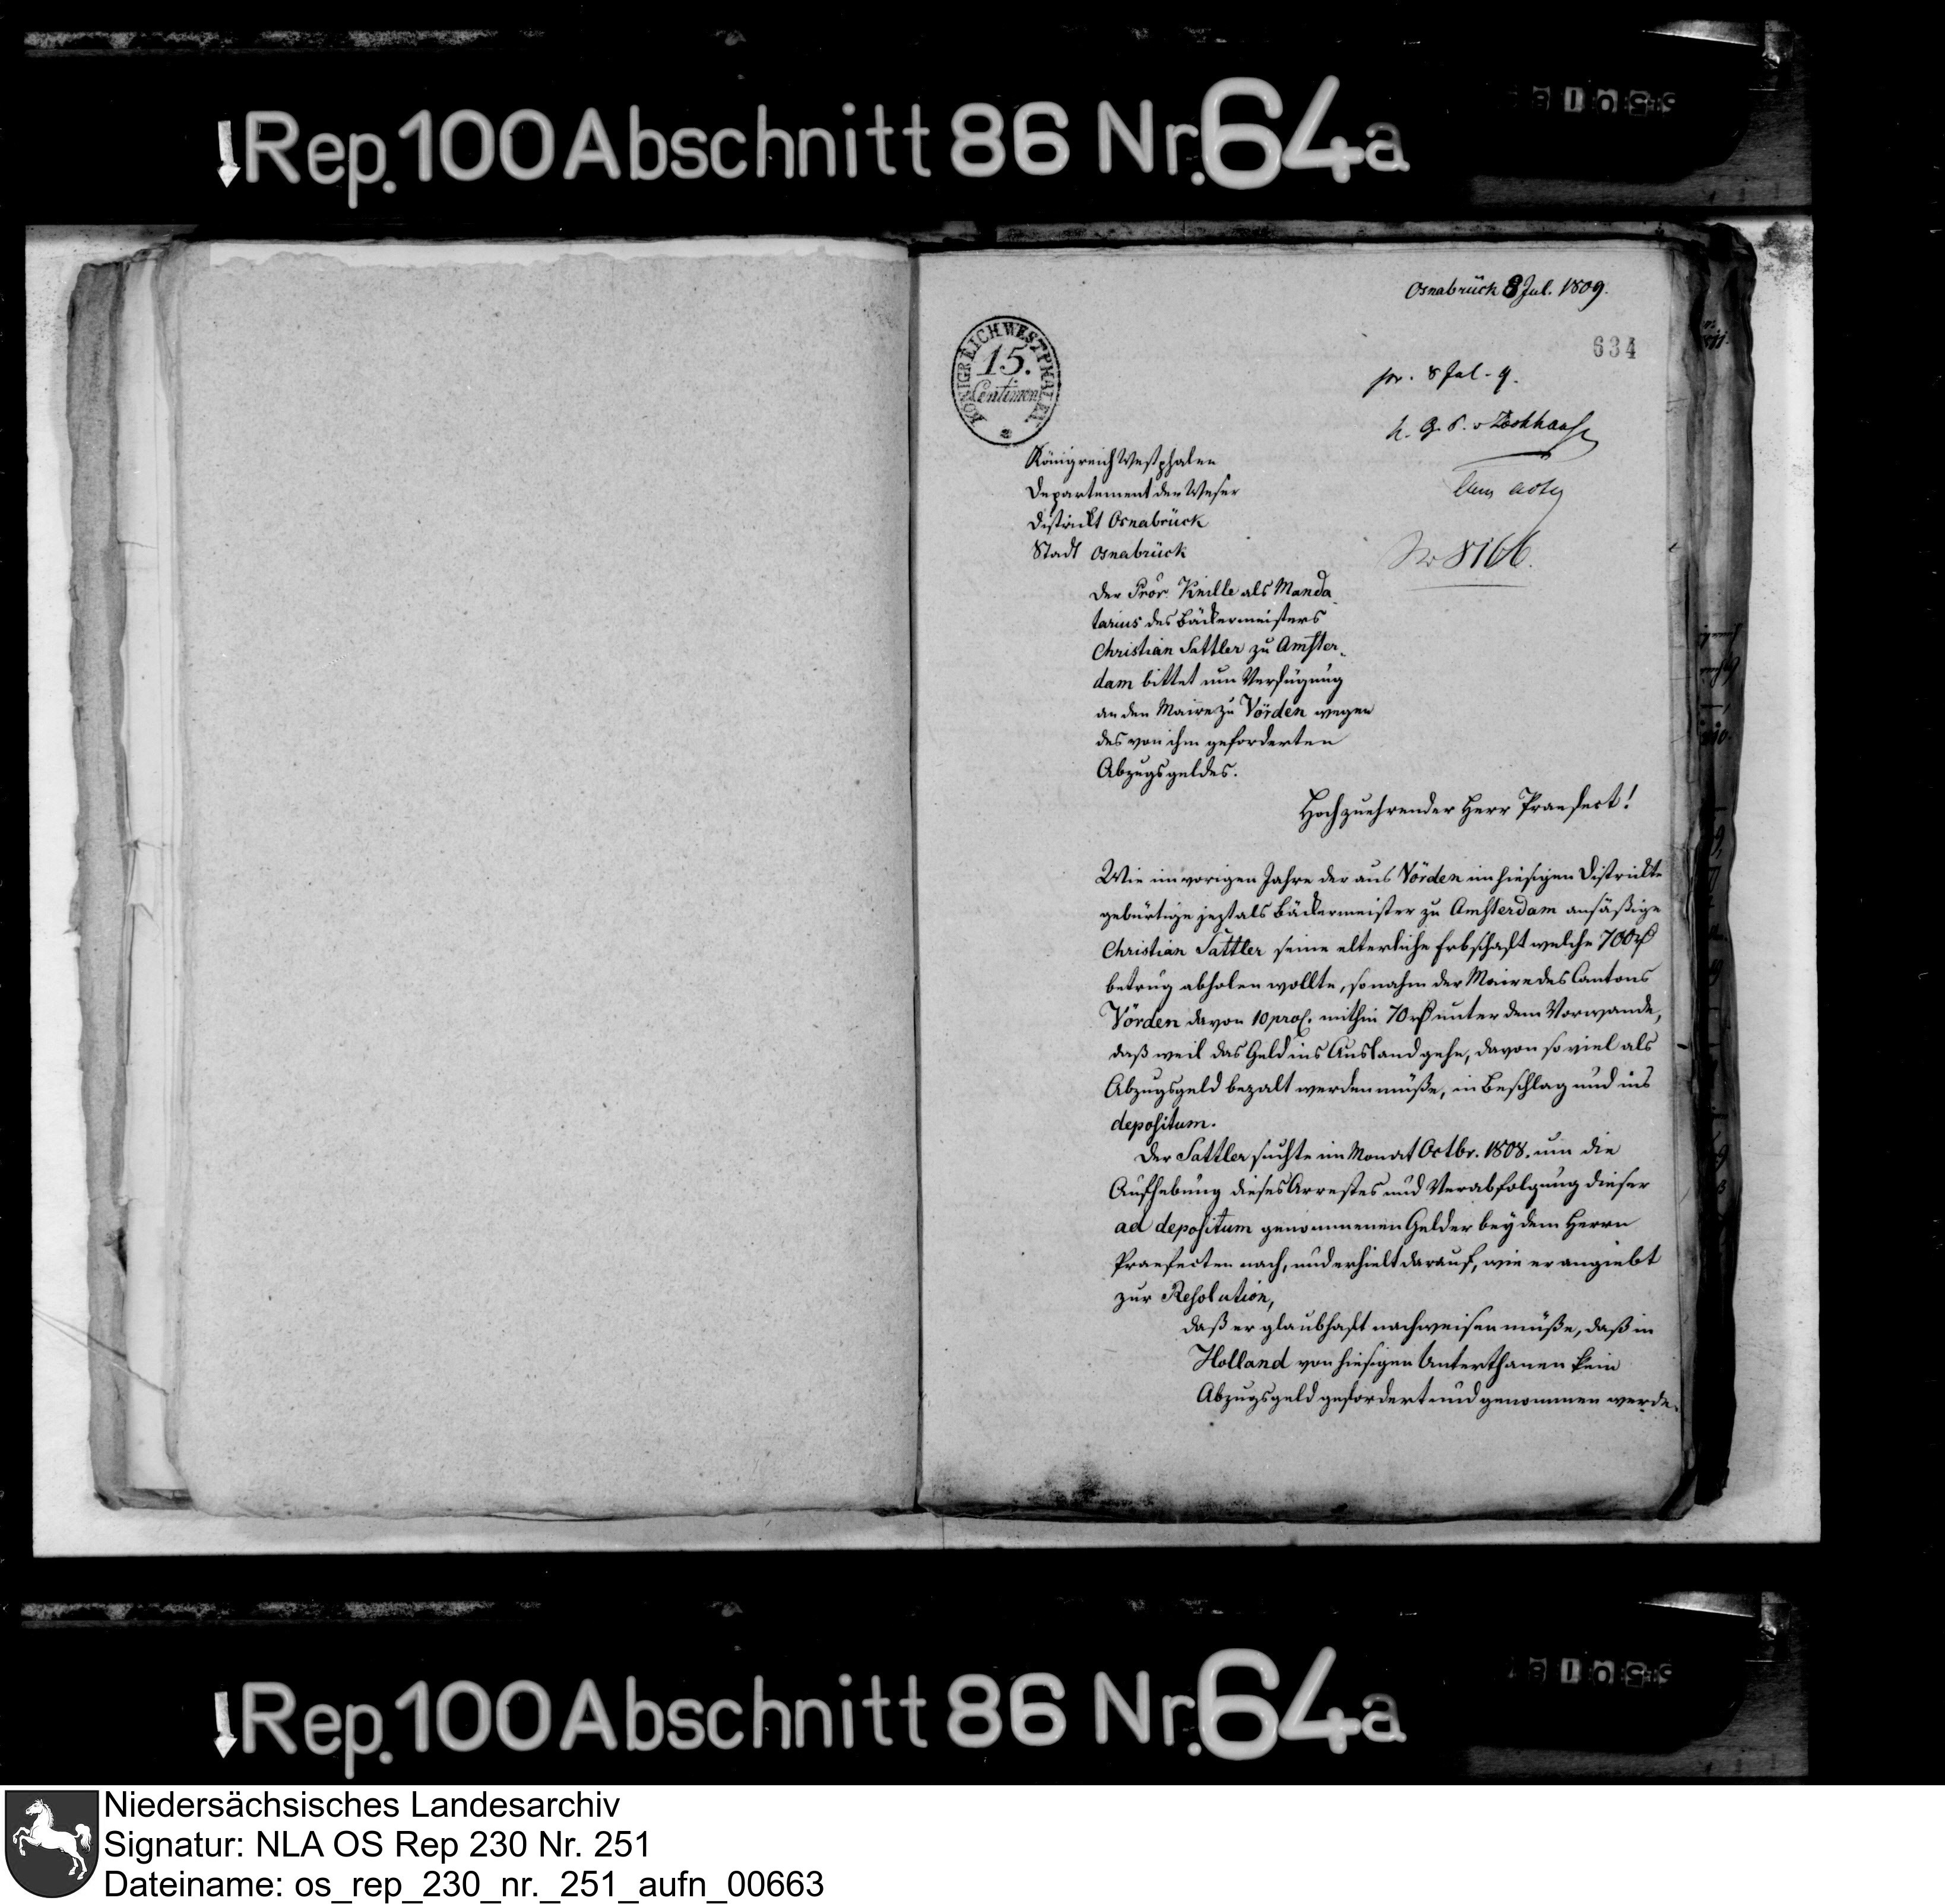 Rep. 100 Abschnitt 86 Nr. 64a
Osnabrück 8 Jul. 1809.
634
KÖNIGREICH WESTPHALEN
15.
Centimen
pr. 8 Jul. 9.
No 8166.
Königreich Westphalen
Departement der Weser
District Osnabrück
Stadt Osnabrück
Der Pror. Knille als Manda
tarius des Bäckermeisters
Christian Sattler zu Amster-
dam bittet um Verfügung
an den Maire zu Vörden wegen
des von ihm geforderten
Abzugsgeldes.
Hochzuehrender Herr Praefect!
Wie im vorigen Jahre der aus Vörden im hiesigen Districkte
gebürtige jezt als Bäckermeister zu Amsterdam ansäßige
Christian Sattler seine elterliche Erbschaft welche 700 rß
betrug abholen wollte, so nahm der Maire des Cantons
Vörden davon 10 proC. mithin 70 rß unter dem Vorwande,
daß weil das Geld ins Ausland gehe, davon so viel als
Abzugsgeld bezalt werden müße, in Beschlag und ins
depositum.
Der Sattler suchte im Monat Octbr. 1808. um die
Aufhebung dieses Arrestes und Verabfolgung dieser
ad depositum genommenen Gelder bey dem Herrn
Praefecten nach, und erhielt darauf, wie er angiebt
zur Resolution,
daß er glaubhaft nachweisen müße, daß in
Holland von hiesigen Unterthanen kein
Abzugsgeld gefordert und genommen werde.
Rep. 100 Abschnitt 86 Nr. 64a
Niedersächsisches Landesarchiv
Signatur: NLA OS Rep 230 Nr. 251
Dateiname: os_rep_230_nr._251_aufn_00663